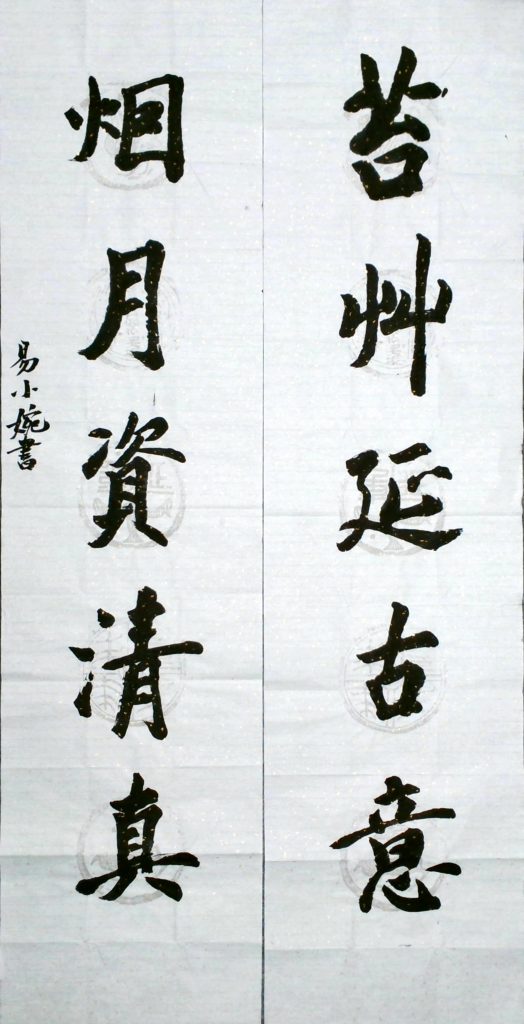 苔艸延古意
烟月資清真
易小婉書